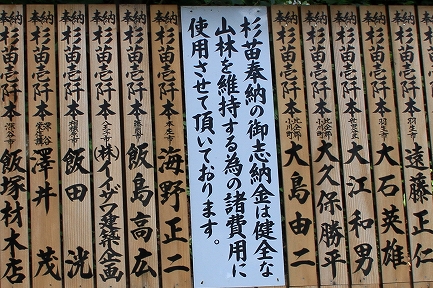 奉納 杉苗壱阡本 遠藤正仁
奉納 杉苗壱阡本 羽生市 大石英雄
奉納 杉苗壱阡本 大江和男
奉納 杉苗壱阡本 比企郡小川町 大久保勝平
奉納 杉苗壱阡本 比企郡小川町 大島由二
杉苗奉納の御志納金は健全な
山林を維持する為の諸費用に
使用させて頂いております。
奉納 杉苗壱阡本 海野正二
奉納 杉苗壱阡本 飯島高広
奉納 杉苗壱阡本 (株)イイヅカ建築企画
奉納 杉苗壱阡本 飯田 洸
奉納 杉苗壱阡本 澤井 茂
奉納 杉苗壱阡本 深谷市 飯塚材木店